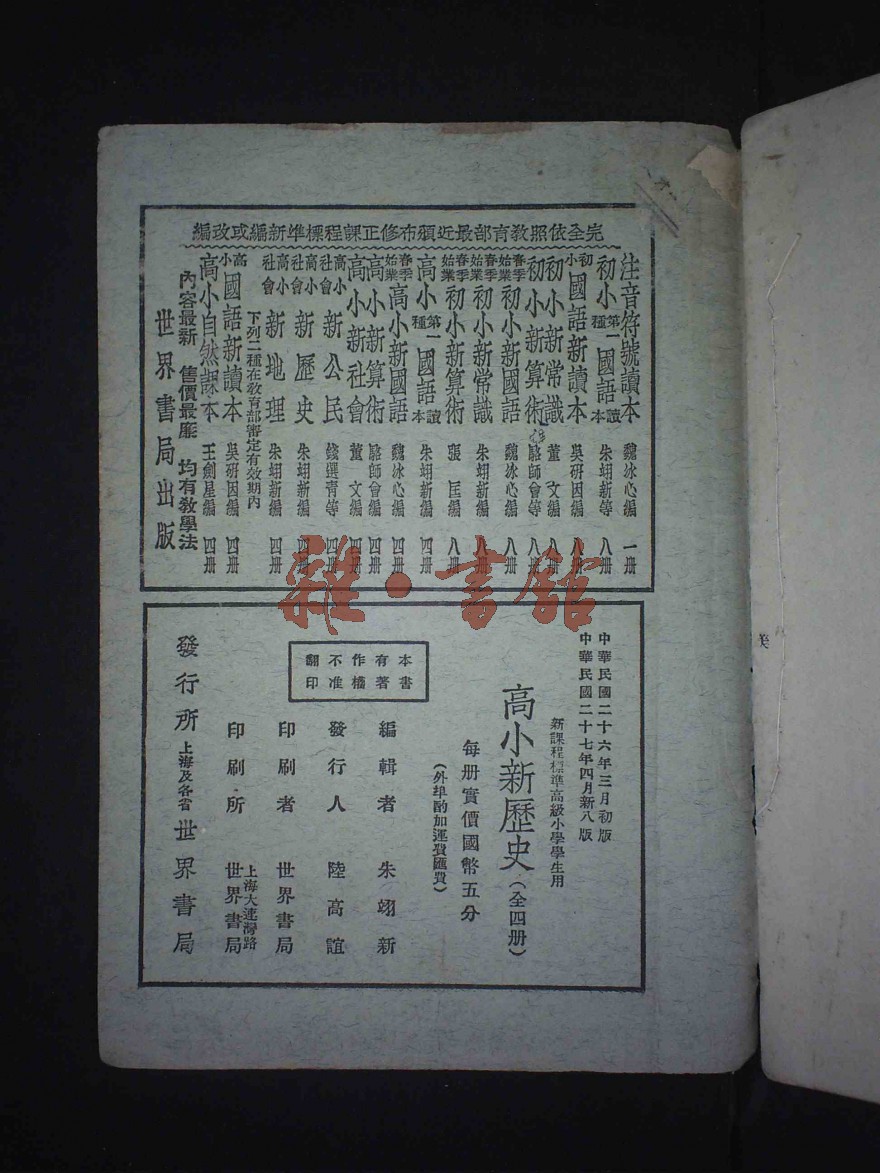 完全依照教育部最近頒布修正課程標準新編或改編
注音符號讀本 魏冰心編 一册
初小第一種國語讀本 朱翊新等 八册
初小國語新讀本 吳研因編 八册
初小新常識 董文編 八册
初小新算術 駱師曾等 八册
春季始業初小新國語 魏冰心編 八册
春季始業初小新常識 朱翊新編 八册
春季始業初小新算術 張匡編 八册
高小第一種國語讀本 朱翊新編 四册
春季始業高小新國語 魏冰心編 四册
高小新算術 駱師曾編 四册
高小新社會 董文編 四册
高小社會新公民 錢選青等 四册
高小社會新歷史 朱翊新編 四册
高小社會新地理 朱翊新編 四册
下列二種在教育部審定有效期內
高小國語新讀本 吳研因編 四册
高小自然課本 王劍星編 四册
內容最新 售價最廉 均有教學法
世界書局出版
中華民國二十六年三月初版
中華民國二十七年四月新八版
新課程標準高級小學學生用
高小新歷史(全四册)
每册實價國幣五分
(外埠酌加運費匯費)
本書
有著
作權
不准
翻印
編輯者 朱翊新
發行人 陸高誼
印刷者 世界書局
印刷所 上海大連灣路世界書局
發行所 上海及各省世界書局
雜·書館